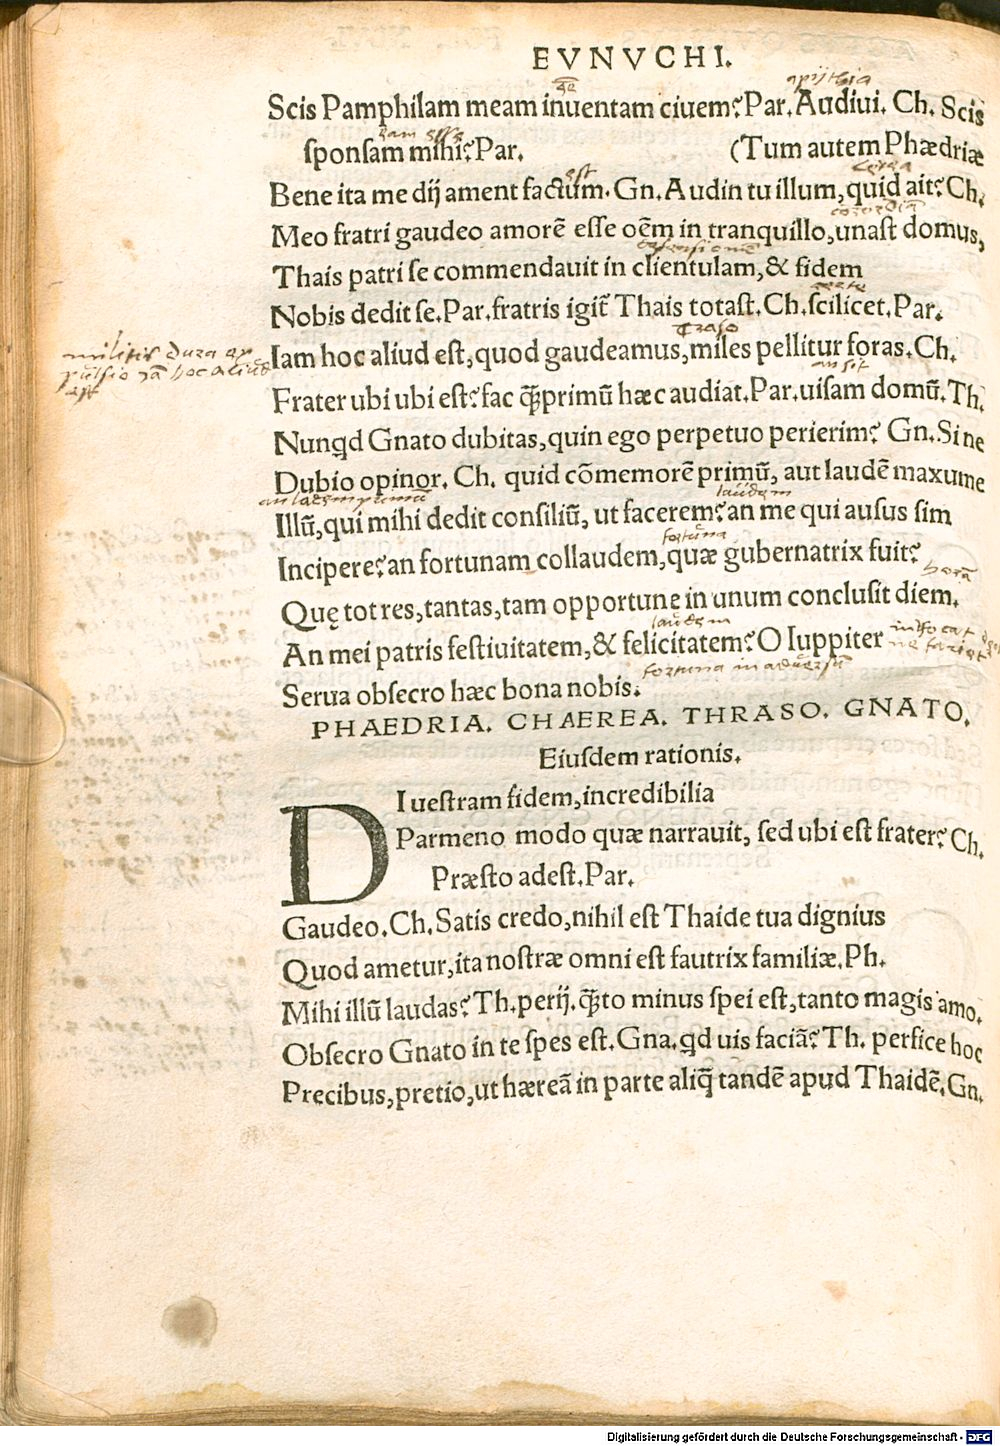 EVNVCHI.
Scis Pamphilam meam inuentam ciuem? Par. Audiui. Ch. Scis
sponsam mihi? Par. (Tum autem Phædriæ
Bene ita me dij ament factum. Gn. Audin tu illum, quid ait? Ch.
Meo fratri gaudeo amorē esse oēm in tranquillo, unast domus,
Thais patri se commendauit in clientulam, & fidem
Nobis dedit se. Par. fratris igit̃ Thais totast. Ch. scilicet. Par.
militis dura ex
Iam hoc aliud est, quod gaudeamus, miles pellitur foras. Ch.
pulsio iā hoc aliud
est
Frater ubi ubi est? fac q̃primū hæc audiat. Par. uisam domū. Th.
Nunqd Gnato dubitas, quin ego perpetuo perierim? Gn. Sine
Dubio opinor. Ch. quid cōmemorē primū, aut laudē maxume
laudem
Illū, qui mihi dedit consiliū, ut facerem? an me qui ausus sim
fortuna
Incipere? an fortunam collaudem, quæ gubernatrix fuit?
Quę tot res, tantas, tam opportune in unum conclusit diem.
laudem
An mei patris festiuitatem, & felicitatem? O Iuppiter
Serua obsecro hæc bona nobis.
PHAEDRIA. CHAEREA. THRASO. GNATO.
Eiusdem rationis.
DI uestram fidem, incredibilia
Parmeno modo quæ narrauit, sed ubi est frater? Ch.
Præsto adest. Par.
Gaudeo. Ch. Satis credo, nihil est Thaide tua dignius
Quod ametur, ita nostræ omni est fautrix familiæ. Ph.
Mihi illū laudas? Th. perij. q̃to minus spei est, tanto magis amo.
Obsecro Gnato in te spes est. Gna. qd uis faciā? Th. perfice hoc
Precibus, pretio, ut hæreā in parte aliq̃ tandē apud Thaidē. Gn.
Digitalisierung gefördert durch die Deutsche Forschungsgemeinschaft - DFG